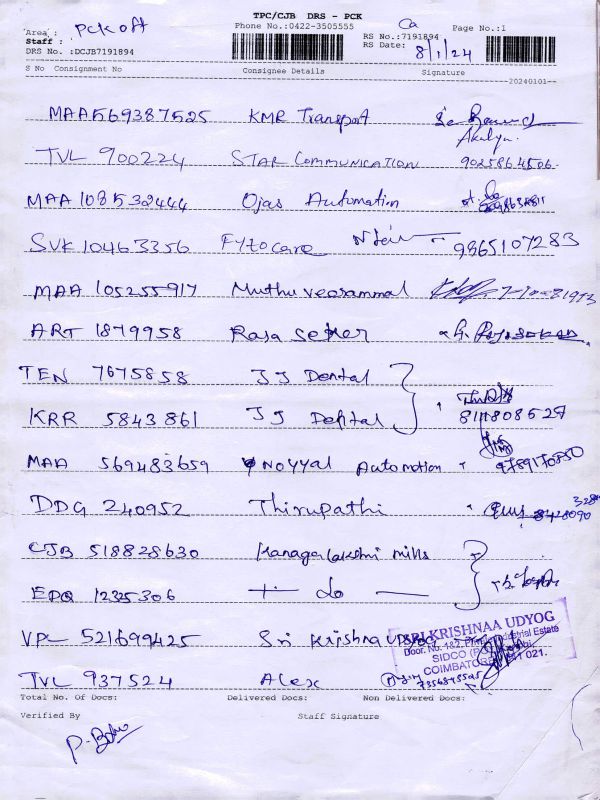 TPC/CJB DRS - PCK
Area : PCK off Phone No.:0422-3505555 Ca Page No.:1
Staff : RS No.:7191894
DRS No. :DCJB7191894 RS Date: 8/1/24
S No Consignment No Consignee Details Signature
20240101
MAA569387525 KMR Transport
Akalya
TVL 900224 STAR COMMUNICATION 9025864506
MAA 108532444 Ojas Automation
SVK 10463356 Fytocare 9865107283
MAA 105255917 Muthu Veerammal
ART 1879958 Raja Seker
TEN 7675858 JJ Dental
KRR 5843861 JJ Dental 8111808527
MAA 569483659 NOYYAL Automotion 9789170850
DDG 240952 Thirupathi
CJB 518828630 Kanagalakshmi Mills
EDQ 1225306 Do
VPL 521699425 Sri Krishna Udyog SRI KRISHNAA UDYOG
Door. No. 1&2, Industrial Estate
SIDCO
COIMBATORE 641 021.
TVL 937524 Alex 7354875525
Total No. Of Docs: Delivered Docs: Non Delivered Docs:
Verified By Staff Signature